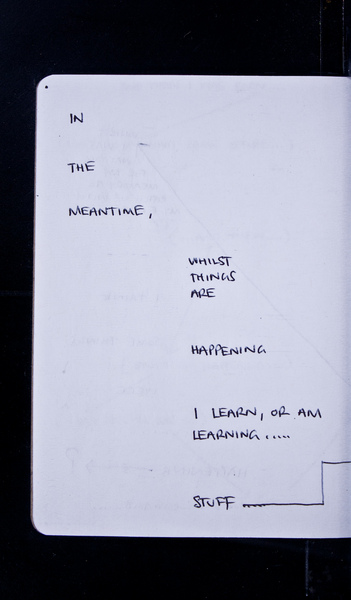 IN
THE
MEANTIME,
WHILST
THINGS
ARE
HAPPENING
I LEARN, OR AM
LEARNING.....
STUFF.....